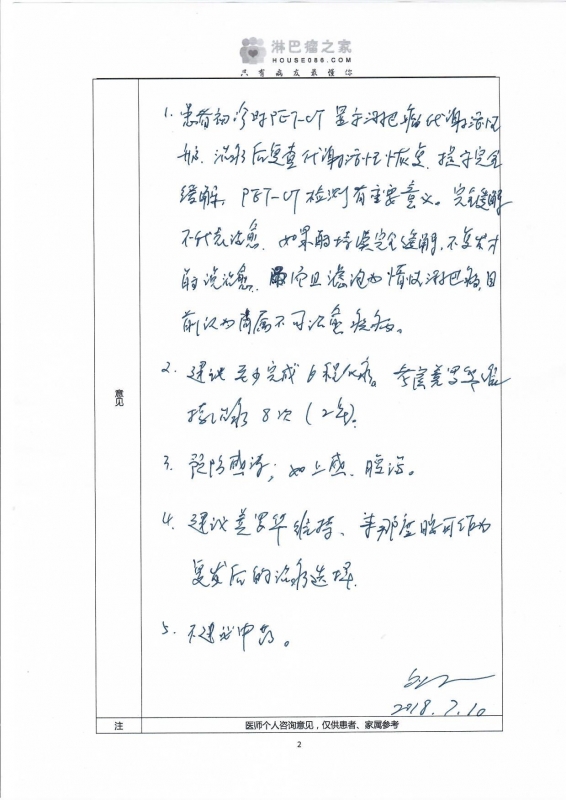 淋巴瘤之家
HOUSE086.COM
只有病友最懂你
意见
1. 患者初诊时PET-CT显示淋巴瘤代谢活性
治疗后复查代谢活性恢复，提示完全
缓解，PET-CT检测有重要意义。完全缓解
不代表治愈，如果能持续完全缓解，不复发才
能说治愈，而且滤泡为惰性淋巴瘤，目
前认为尚属不可治愈疾病。
2. 建议至少完成6程化疗。美罗华维
持治疗8次（2年）。
3. 预防感染；如上感、腹泻。
4. 建议美罗华维持、来那度胺可作为
复发后的治疗选择
5. 不建议中药。
2018.7.10
注
医师个人咨询意见，仅供患者、家属参考
2